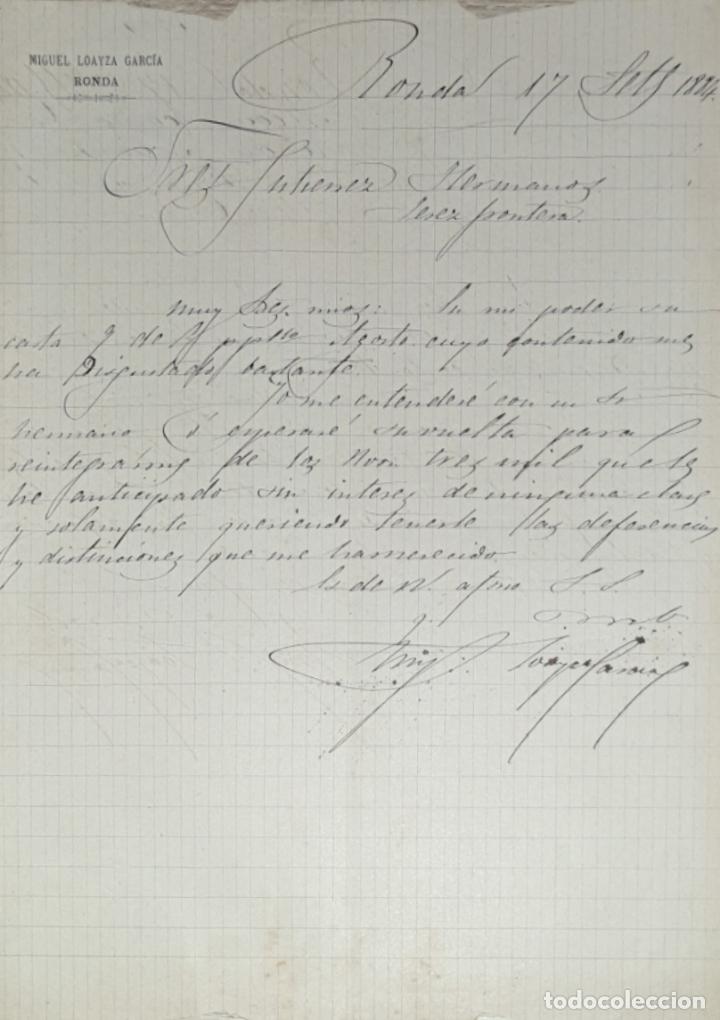 MIGUEL LOAYZA GARCÍA
RONDA
Ronda 17 1884.
Sres Gutierrez Hermanos
Jerez frontera.
Muy Sres mios: En mi poder su
carta de Agosto cuyo contenido me
ha Disgustado bastante.
Yo me entenderé con su Sr
hermano ó esperaré su vuelta para
reintegrarme de los tres mil que le
he anticipado sin interes de ninguna clase
y solamente queriendo tenerle las deferencias
y distinciones que me ha merecido.
de V. afmo S. S.
q.
Loayza Garcia
todocoleccion